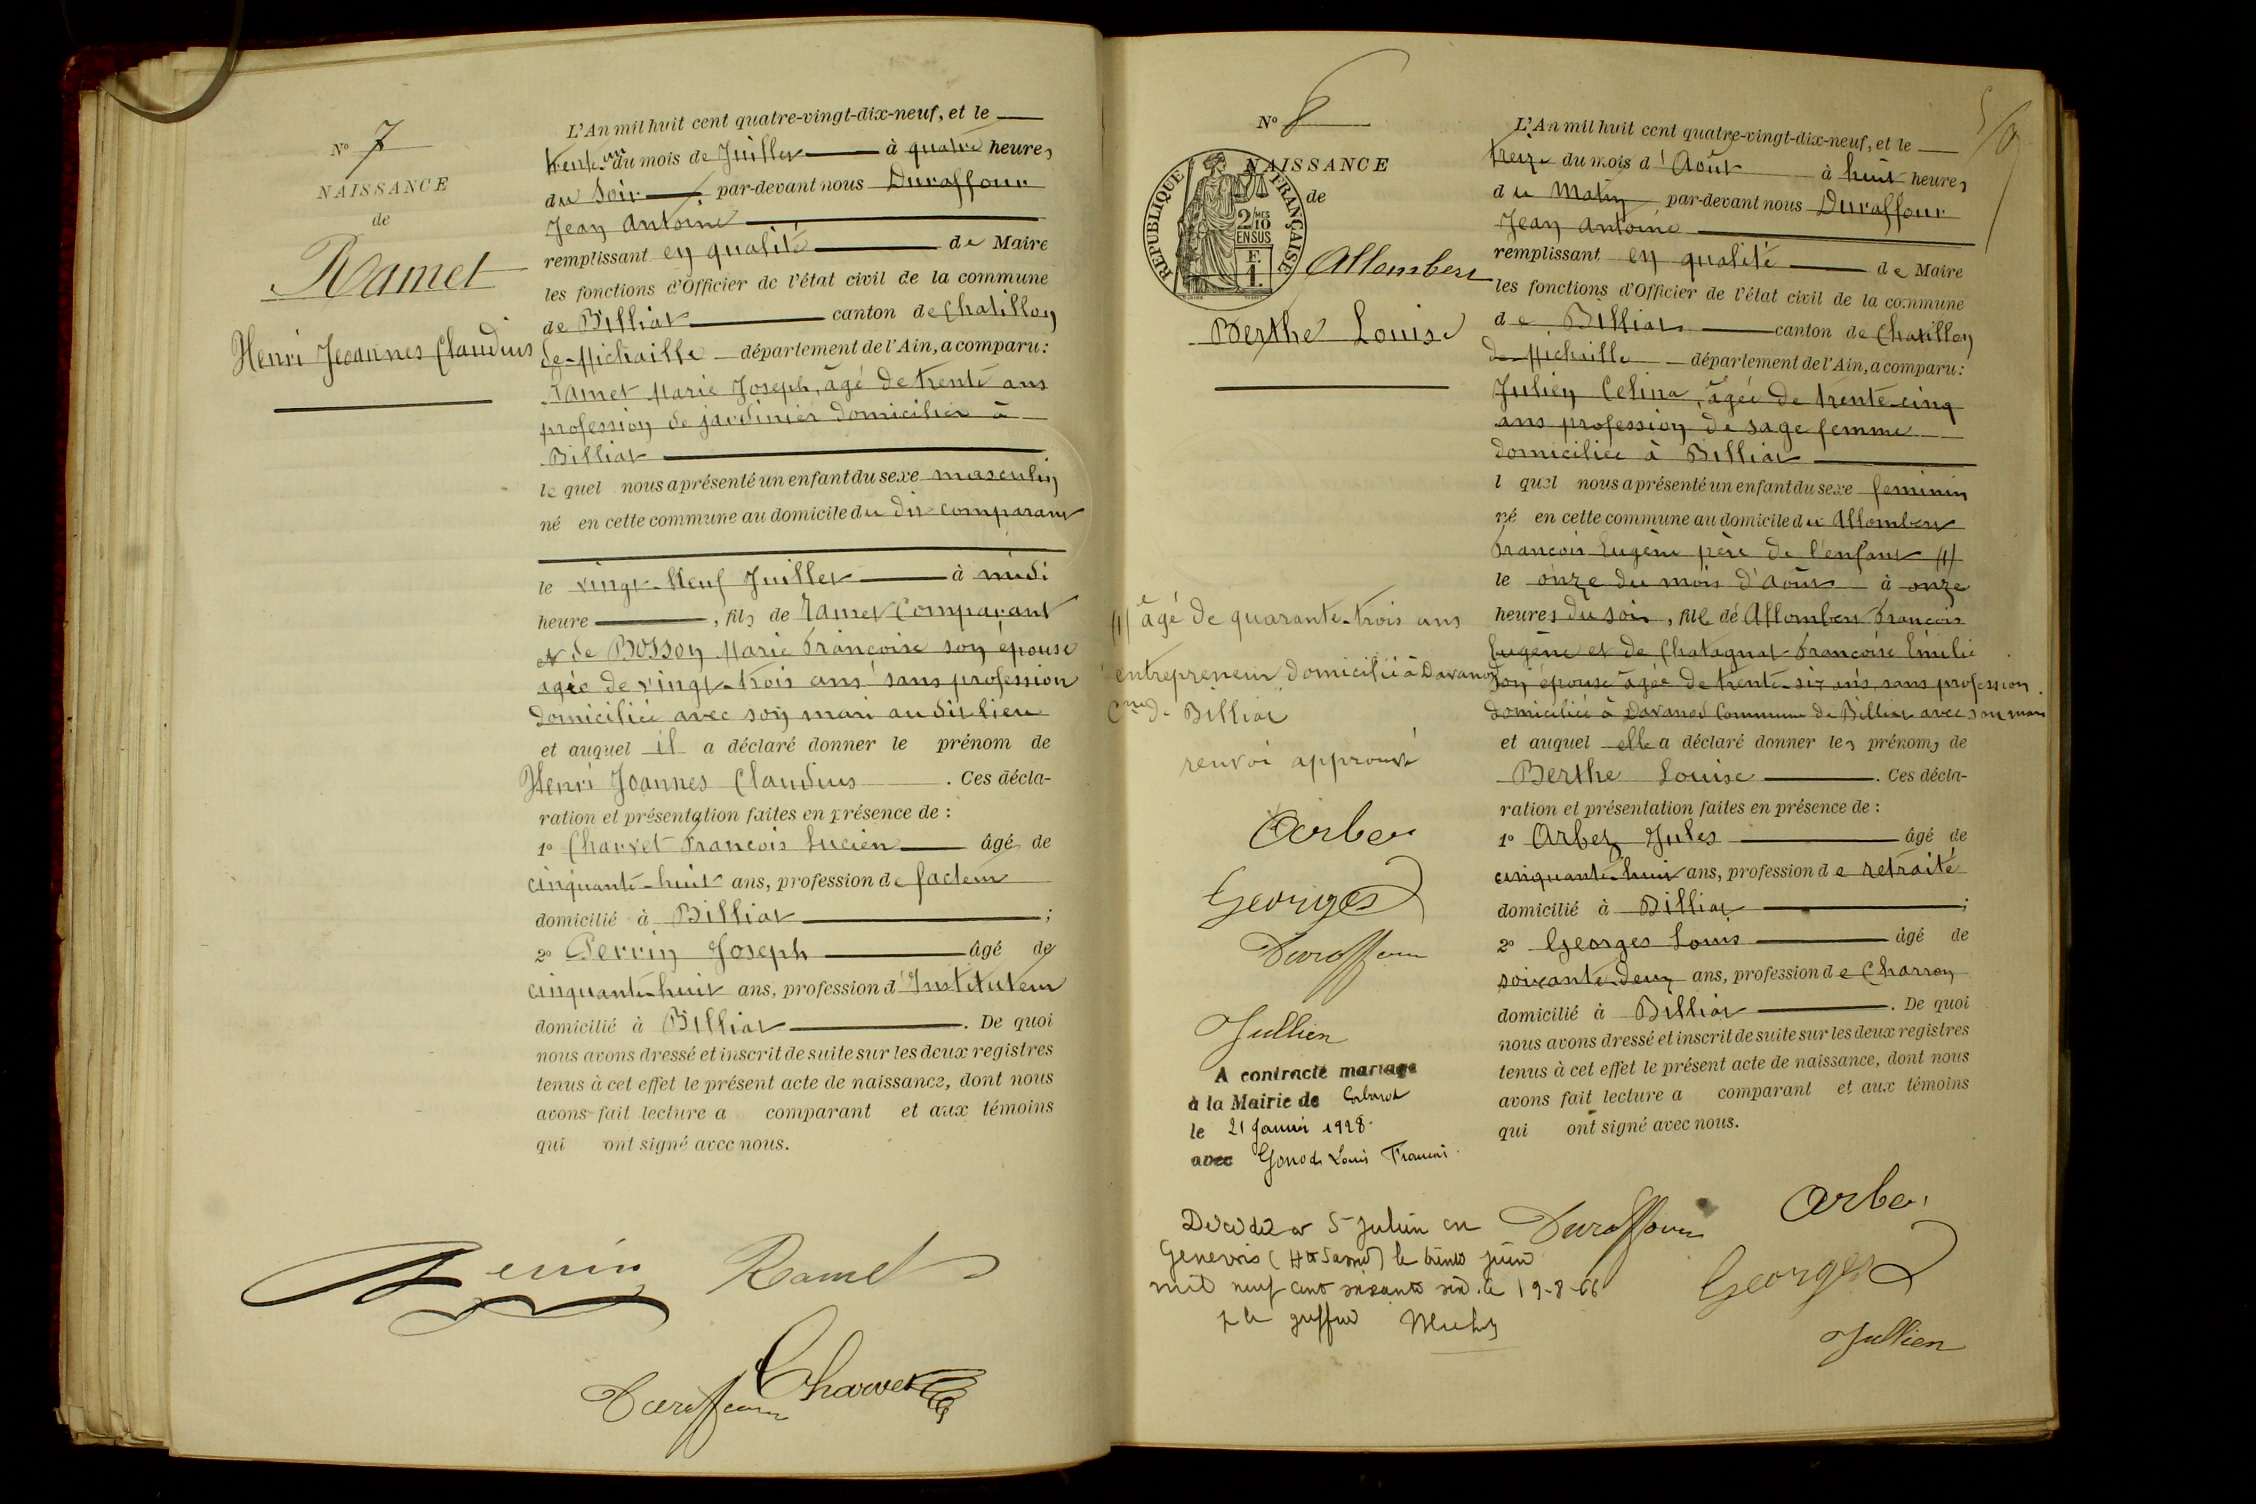 N° 7
NAISSANCE
de
Ramel
Henri Joannes Claudius
L'An mil huit cent quatre-vingt-dix-neuf, et le
trente un du mois de Juillet à quatre heures
du Soir par-devant nous Duraffour
Jean Antoine
remplissant en qualité de Maire
les fonctions d'Officier de l'état civil de la commune
de Billiat canton de Chatillon
de Michaille département de l'Ain, a comparu :
Ramel Marie Joseph, âgé de trente ans
profession de jardinier domicilié à
Billiat
lequel nous a présenté un enfant du sexe masculin
né en cette commune au domicile du dit comparant
le vingt-Neuf Juillet à midi
heure , fils de Ramel Comparant
et de Bosson Marie Françoise son épouse
agée de vingt-trois ans sans profession
domiciliée avec son mari au dit lieu
et auquel il a déclaré donner le prénom de
Henri Joannes Claudius . Ces décla-
ration et présentation faites en présence de :
1° Charvet François Lucien âgé de
cinquante-huit ans, profession de facteur
domicilié à Billiat ;
2° Perrin Joseph âgé de
cinquante-huit ans, profession d'Instituteur
domicilié à Billiat . De quoi
nous avons dressé et inscrit de suite sur les deux registres
tenus à cet effet le présent acte de naissance, dont nous
avons fait lecture a comparant et aux témoins
qui ont signé avec nous.
Perrin Ramel
Charvet
Duraffour
5/9
N° 8
NAISSANCE
de
RÉPUBLIQUE FRANÇAISE
2/10 MES
EN SUS
F.
1.
Allombert
Berthe Louise
L'An mil huit cent quatre-vingt-dix-neuf, et le
treize du mois d'Août à huit heures
du Matin par-devant nous Duraffour
Jean Antoine
remplissant en qualité de Maire
les fonctions d'Officier de l'état civil de la commune
de Billiat canton de Chatillon
de Michaille département de l'Ain, a comparu :
Julien Celina, âgée de trente-cinq
ans profession de sage femme
domiciliée à Billiat
l quel nous a présenté un enfant du sexe feminin
né en cette commune au domicile du Allombert
François Eugène père de l'enfant
le onze du mois d'Août à onze
heures du soir, fille de Allombert François
Eugène et de Chatagnat Françoise Emilie
son épouse âgée de trente-six ans, sans profession
domiciliée à Davanod Commune de Billiat avec son mari
et auquel elle a déclaré donner les prénoms de
Berthe Louise . Ces décla-
ration et présentation faites en présence de :
1° Arbez Jules âgé de
cinquante-huit ans, profession de retraité
domicilié à Billiat ;
2° Georges Louis âgé de
soixante-deux ans, profession de Charron
domicilié à Billiat . De quoi
nous avons dressé et inscrit de suite sur les deux registres
tenus à cet effet le présent acte de naissance, dont nous
avons fait lecture a comparant et aux témoins
qui ont signé avec nous.
âgé de quarante-trois ans
entrepreneur domicilié à Davanod
Cne de Billiat
renvoi approuvé
Arbez
Georges
Duraffour
Jullien
A contracté mariage
à la Mairie de
le 21 Janvier 1928.
avec Gonod Louis François.
Décédée à St Julien en
Genevois (Hte Savoie) le trente juin
mil neuf cent soixante six. le 19-8-66
p le greffier
Duraffour Arbez
Georges
Jullien